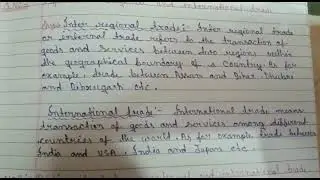 Inter regional trade:- Inter regional trade
or internal trade refers to the transaction of
goods and services between two regions within
the geographical boundary of a Country. As for
example, trade between Assam and Bihar,
and Dibrugarh etc.
International trade:- International trade means
transaction of goods and services among different
countries of the world. As for example, trade between
India and USA, India and Japan etc.